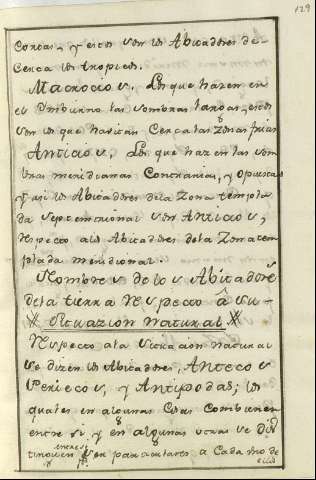 129
Cortas, y estos son los Abitadores de
Cerca los tropicos.
Macrocios. Los que hazen en
el Imbierno las sombras largas, estos
son los que havitan Cerca las Zonas frias
Anticios. Los que hazen las som
bras meridianas Contrarias, y Opuestas
y assi los Abitadores dela Zona templa
da septentrional son Anticios,
respecto alos Abitadores dela Zona tem
plada meridional.
Nombres de los Abitadores
dela tierra Respecto â su
Situazion Natural
Respecto ala Situacion Natural
se dizen los Abitadores, Antecos
Periecos, y Antipodas; los
quales en algunas Cosas Combienen
entre si, y en algunas otras se dis
tinguen entre si por particulares a Cada uno de
ellos